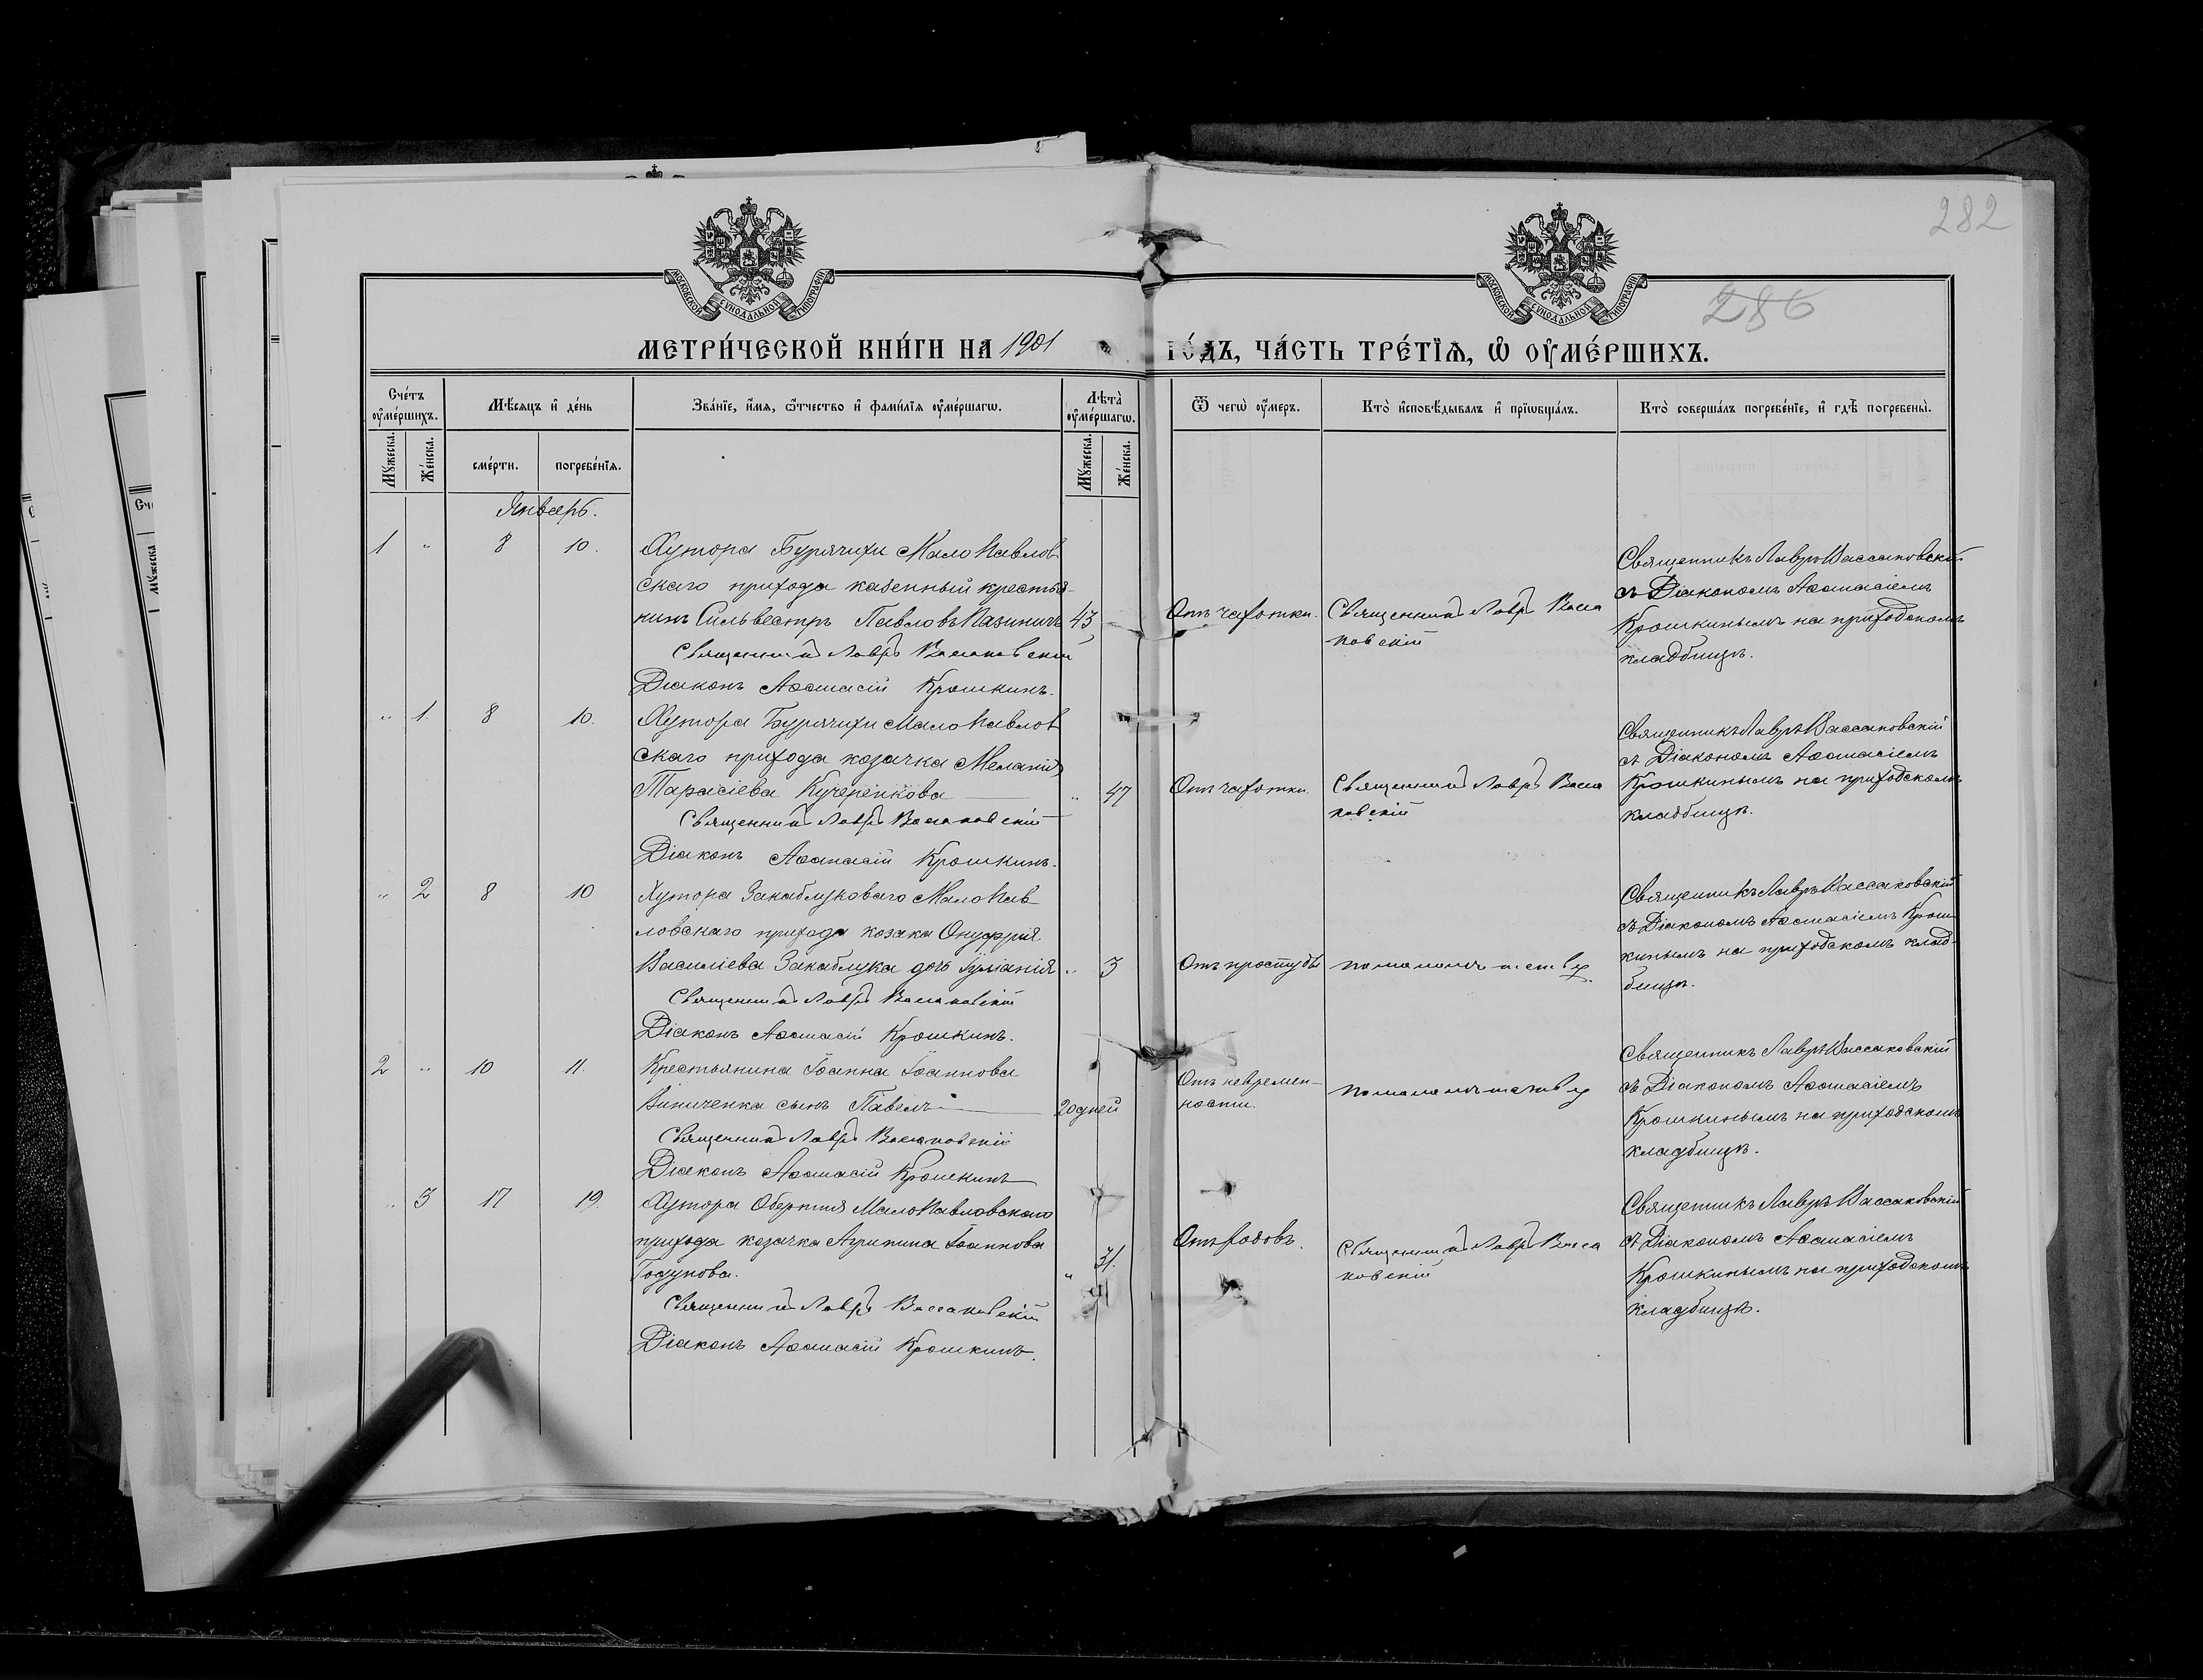 282
286
МОСКОВСКОЙ СѴНОДАЛЬНОЙ ТИПОГРАФІИ
МОСКОВСКОЙ СѴНОДАЛЬНОЙ ТИПОГРАФІИ
МЕТРИ́ЧЕСКОЙ КНИ́ГИ НА 1901 ГО́ДЪ, ЧА́СТЬ ТРЕ́ТЇѦ, Ѡ҆ ОУ҆МЕ́РШИХЪ.
Сче́тъ оу҆ме́ршихъ.
Мꙋ́жеска.
Же́нска.
Мѣ́сѧцъ и҆ де́нь
сме́рти.
погребе́нїѧ.
Зва́нїе, и҆́мѧ, ѻ҆́тчество и҆ фами́лїѧ оу҆ме́ршагѡ.
Лѣ́та̀ оу҆ме́ршагѡ.
Мꙋ́жеска.
Же́нска.
Ѿ чегѡ̀ оу҆́меръ.
Кто̀ и҆сповѣ́дывалъ и҆ прїѡбща́лъ.
Кто̀ соверша́лъ погребе́нїе, и҆ гдѣ̀ погребены̀.
Январь.
1 " 8 10.
Хутора Бурячихи МалоПавлов
скаго прихода казенный крестья-
нинъ Сильвестръ Павловъ 43
Священникъ Лавръ Вассаковскій
Діаконъ Аѳанасій Крошкинъ.
Отъ чахотки.
Священникъ Лавръ Васса
ковскій
Священникъ Лавръ Вассаковскій
съ Діакономъ Аѳанасіемъ
Крошкинымъ на приходскомъ
кладбищѣ.
" 1. 8 10.
Хутора Бурячихи МалоПавлов
скаго прихода козачка Меланія
Тарасіева Кучеренкова " 47
Священникъ Лавръ Вассаковскій
Діаконъ Аѳанасій Крошкинъ.
Отъ чахотки.
Священникъ Лавръ Васса
ковскій
Священникъ Лавръ Вассаковскій
съ Діакономъ Аѳанасіемъ
Крошкинымъ на приходскомъ
кладбищѣ.
" 2 8 10
Хутора Закаблуковаго МалоПав
ловскаго прихода козака Онуфрія
Василіева Закаблука дочь Іуліанія " 3
Священникъ Лавръ Вассаковскій
Діаконъ Аѳанасій Крошкинъ.
Отъ простуды
по малолѣтству
Священникъ Лавръ Вассаковскій
съ Діакономъ Аѳанасіемъ Крош
кинымъ на приходскомъ клад-
бищѣ.
2 " 10 11.
Крестьянина Іоанна Іоаннова
Виниченка сынъ Павелъ 20 дней
Священникъ Лавръ Вассаковскій
Діаконъ Аѳанасій Крошкинъ
Отъ невремен-
ности.
по малолѣтству
Священникъ Лавръ Вассаковскій
съ Діакономъ Аѳанасіемъ
Крошкинымъ на приходскомъ
кладбищѣ.
" 3 17 19.
Хутора МалоПавловскаго
прихода козачка Агрипина Іоаннова
Годунова. " 31.
Священникъ Лавръ Вассаковскій
Діаконъ Аѳанасій Крошкинъ.
Отъ родовъ.
Священникъ Лавръ Васса
ковскій
Священникъ Лавръ Вассаковскій
съ Діакономъ Аѳанасіемъ
Крошкинымъ на приходскомъ
кладбищѣ.